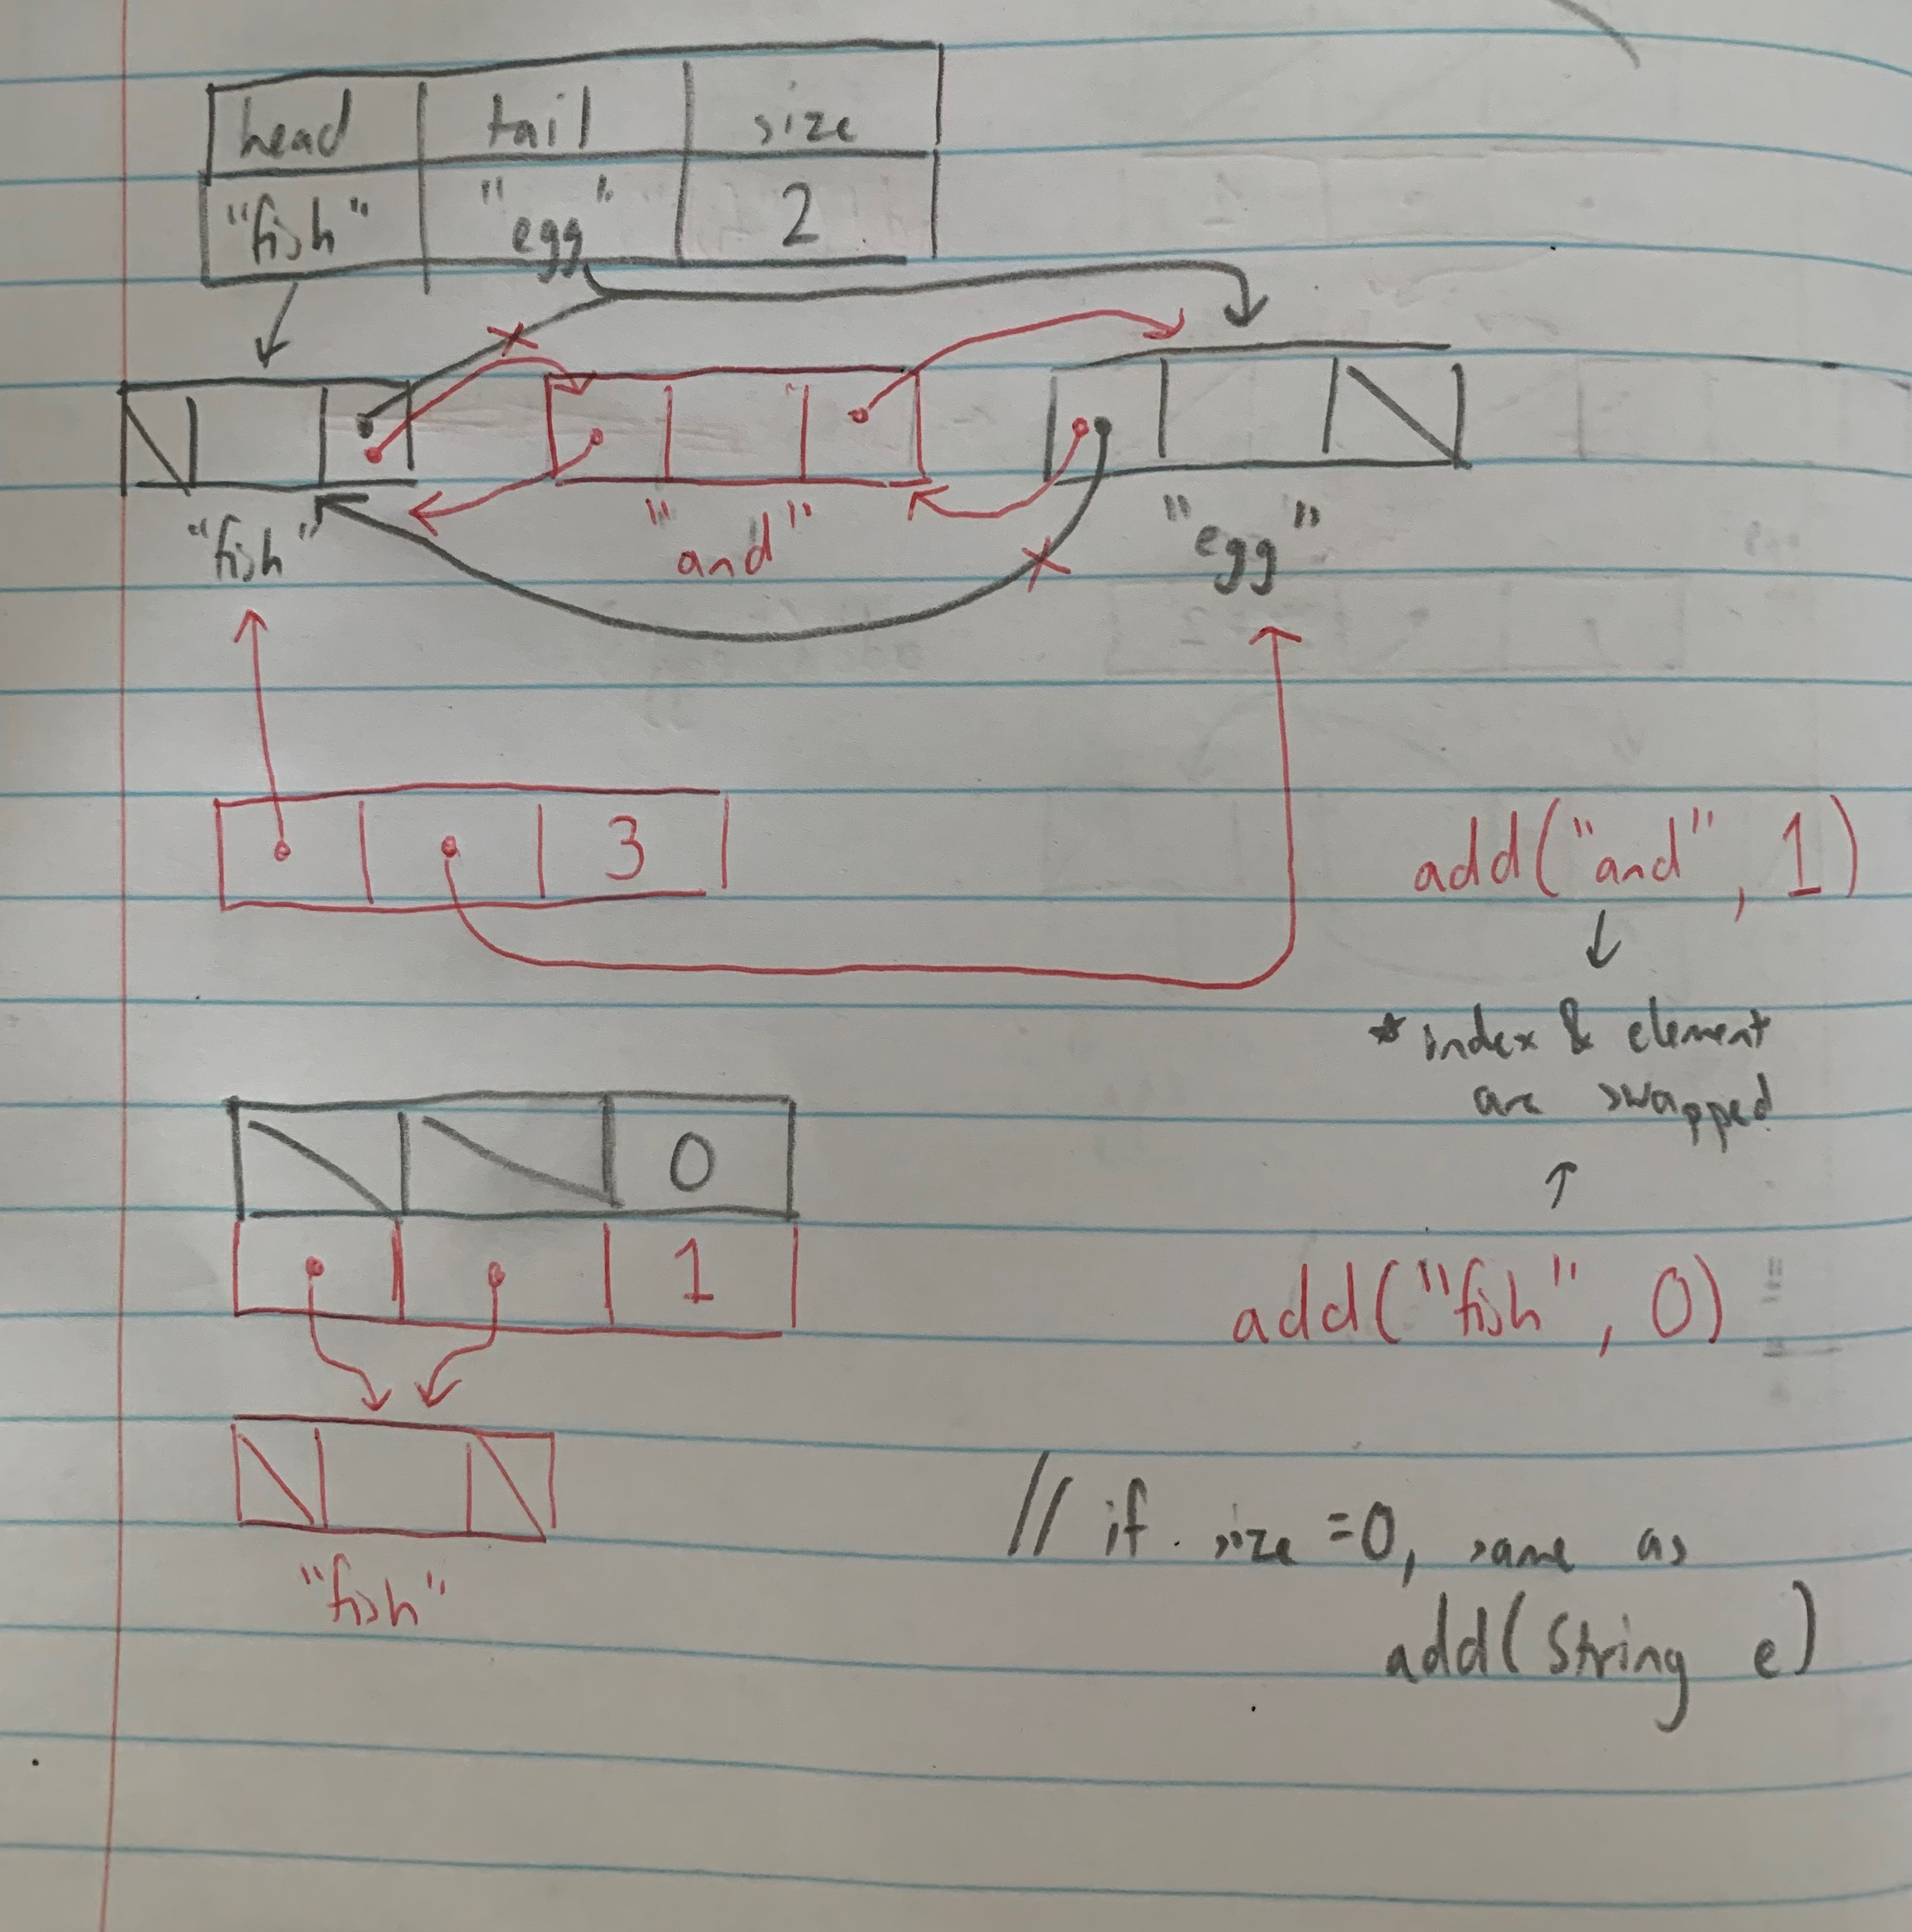 head tail size
"fish" "egg" 2
"fish" "and" "egg"
3
add("and", 1)
* index & element
are swapped
0
1
add("fish", 0)
"fish"
// if size =0, same as
add(String e)